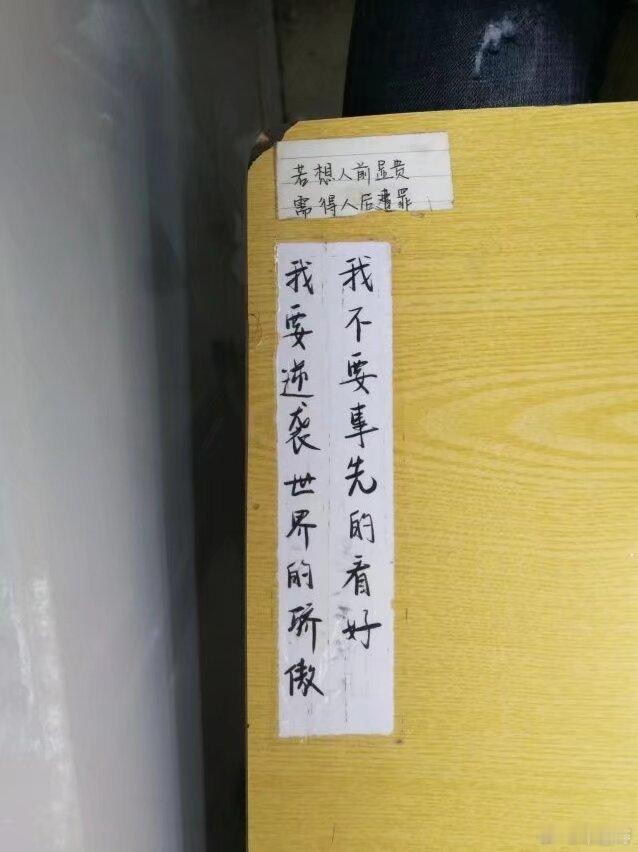 若想人前显贵
需得人后遭罪
我不要事先的看好
我要逆袭世界的骄傲